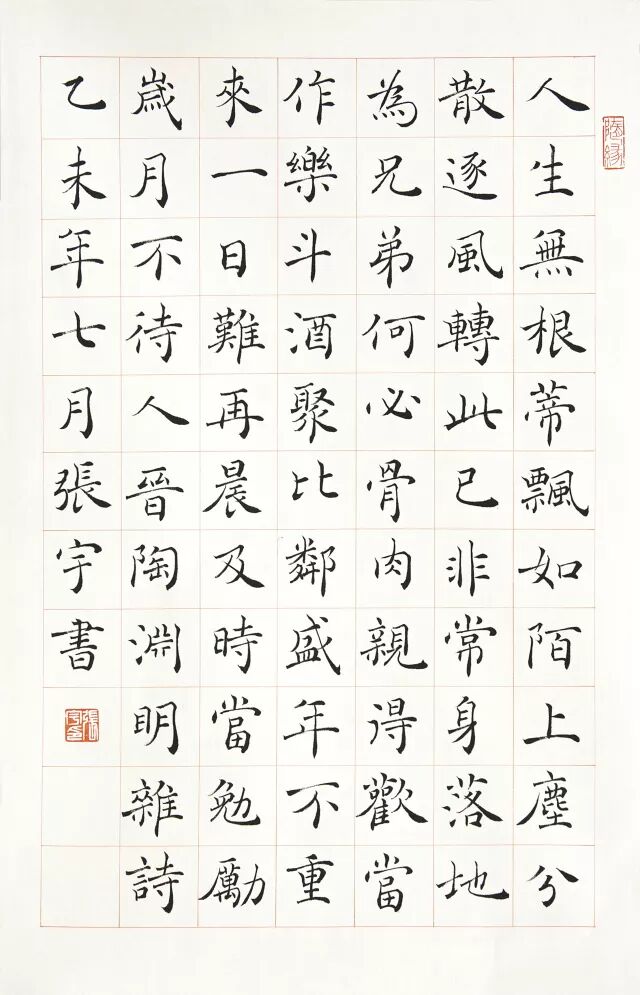 人生無根蒂飄如陌上塵分
散逐風轉此已非常身落地
為兄弟何必骨肉親得歡當
作樂斗酒聚比鄰盛年不重
來一日難再晨及時當勉勵
歲月不待人晉陶淵明雜詩
乙未年七月張宇書
張宇印